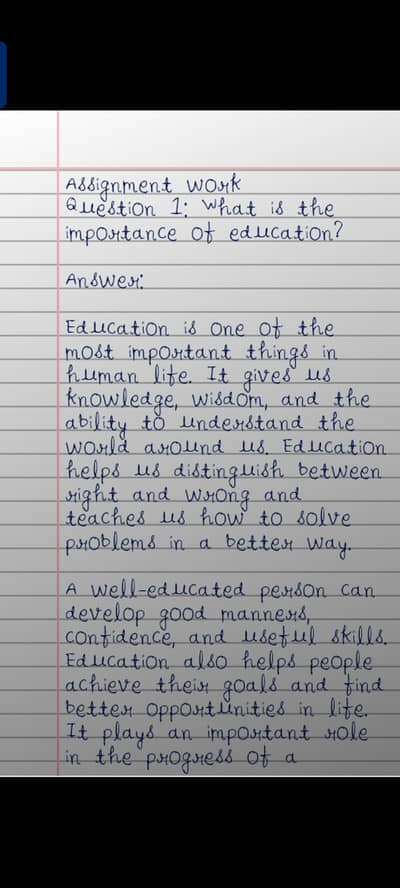 Assignment work
Question 1: What is the
importance of education?
Answer:
Education is one of the
most important things in
human life. It gives us
knowledge, wisdom, and the
ability to understand the
world around us. Education
helps us distinguish between
right and wrong and
teaches us how to solve
problems in a better way.
A well-educated person can
develop good manners,
confidence, and useful skills.
Education also helps people
achieve their goals and find
better opportunities in life.
It plays an important role
in the progress of a